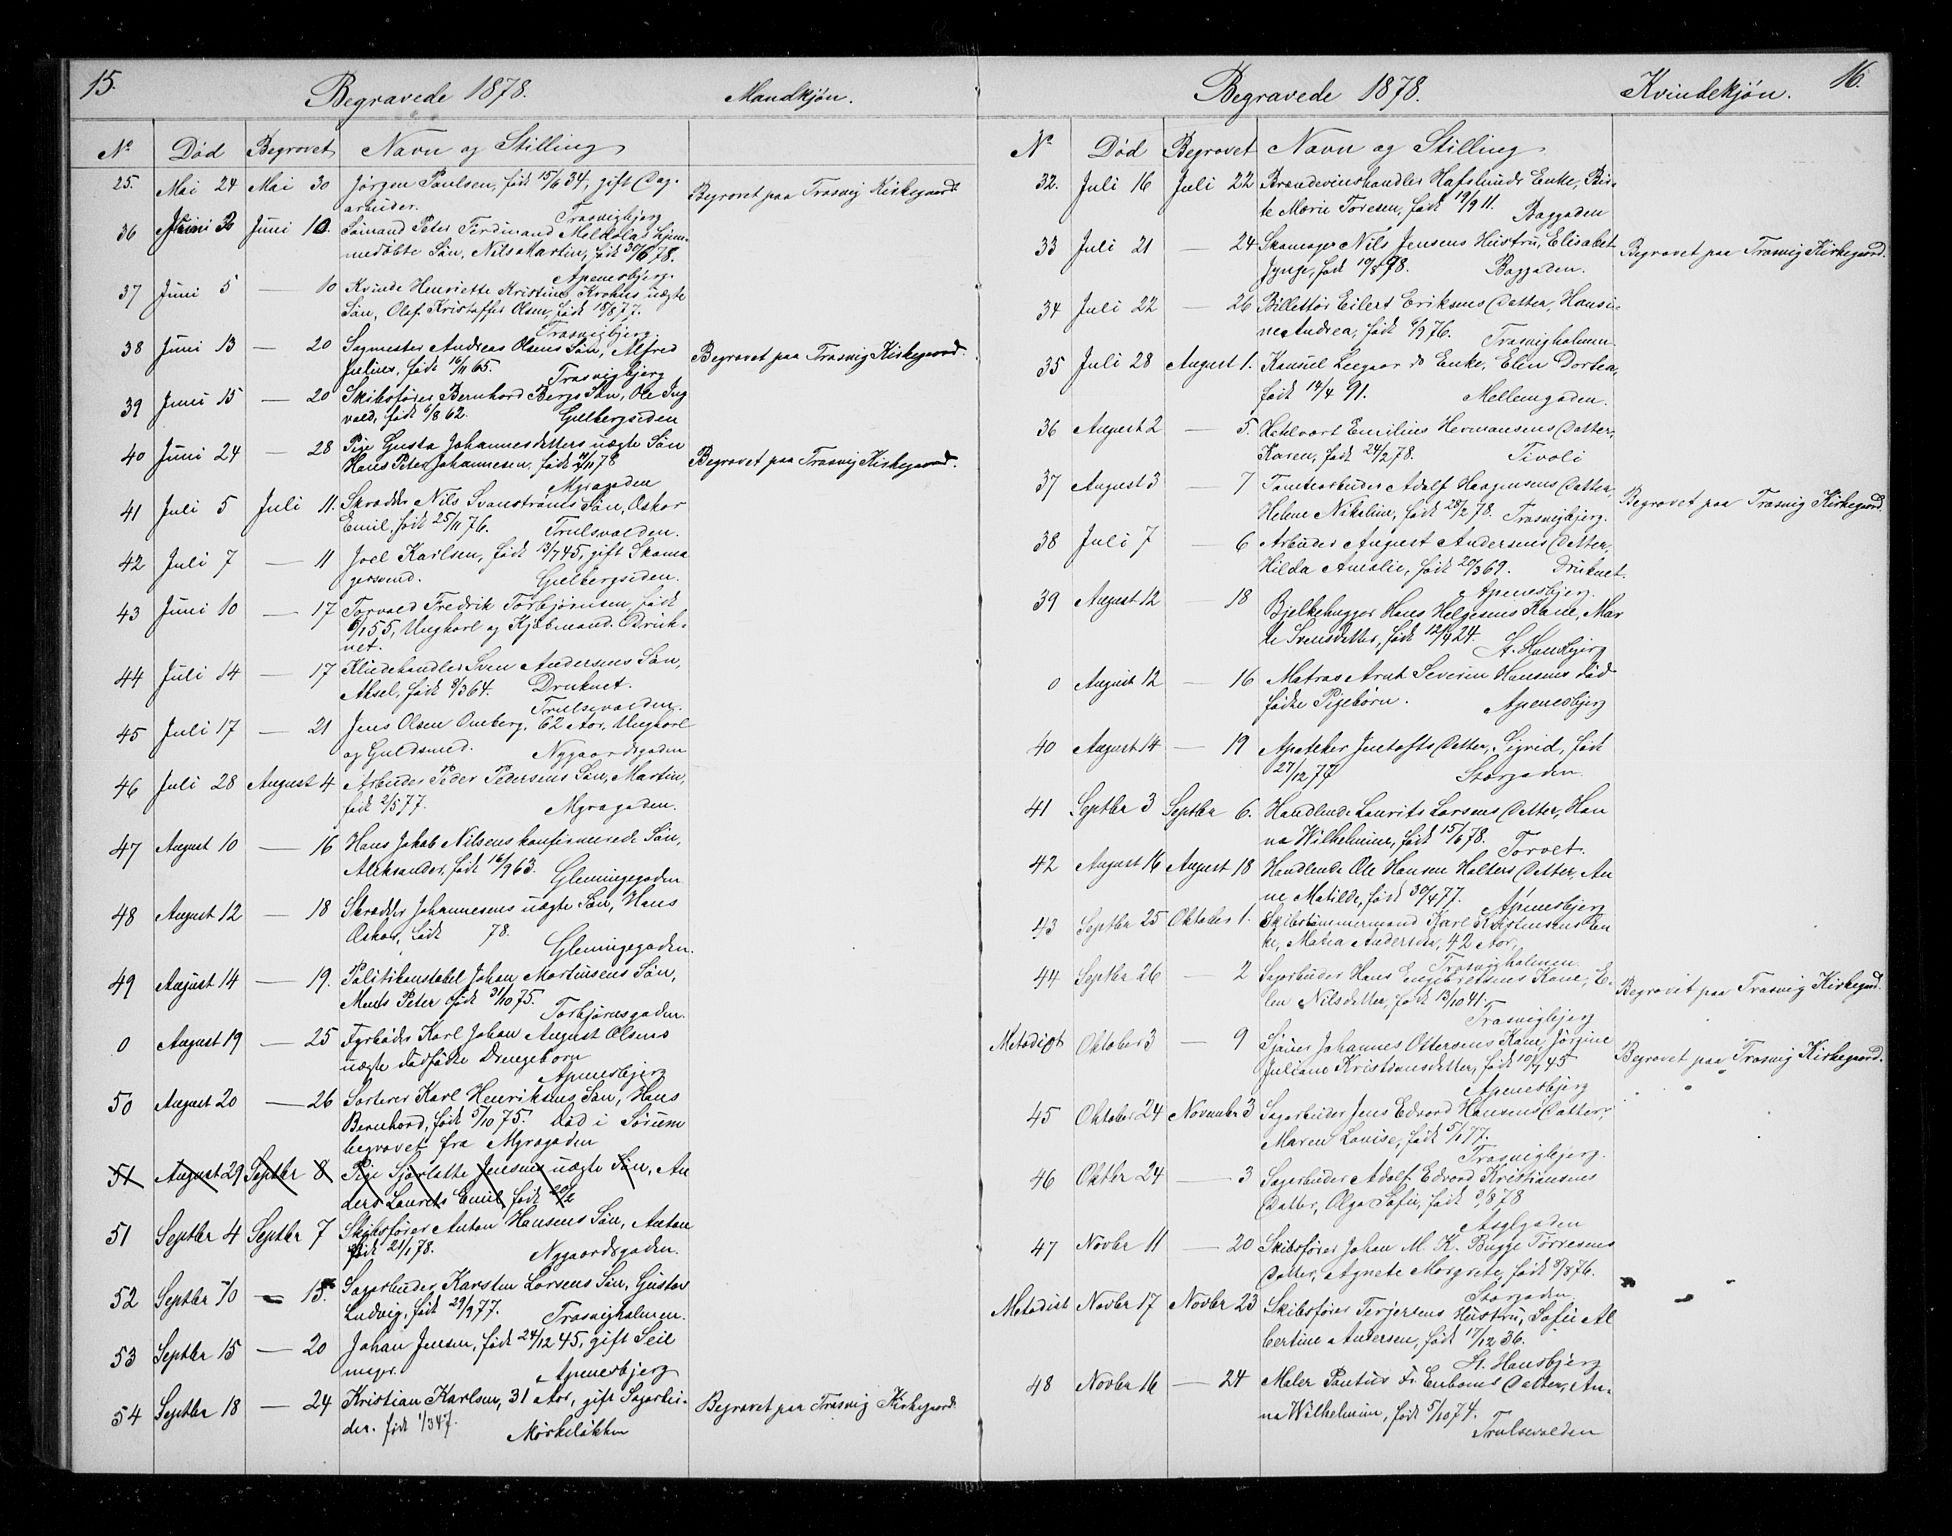 15.
Begravede 1878. Mandkjøn.
No Død Begravet Navn og Stilling
25. Mai 24 Mai 30 Jørgen Poulsen, født 15/6 34, gift Dag-
arbuder. Trosvigbjerg
Begravet paa Trosvig Kirkegaard
36 Juni Juni 10. Sømand Peter Ferdinand hjem-
medøbte Søn, Nils Martin, født 30/6 78.
Apenesbjerg.
37 Juni 5 — 10 Kvinde Henriette Kristine uægte
Søn, Olaf Kristoffer Olsen, født 15/8 77.
Trosvigbjerg.
38 Juni 13 — 20 Sagmester Andreas Olsens Søn, Alfred
Julius, født 16/11 65. Trosvigbjerg
Begravet paa Trosvig Kirkegaard.
39 Juni 15 — 20 Skibsfører Bernhard Bergs Søn, Ole Ing
vald, født 6/8 62. Gulbergsiden
40 Juni 24 — 28 Pige Gusta Johannesdatters uægte Søn
Hans Peter Johannesen, født 78
Myragaden
Begravet paa Trosvig Kirkegaard.
41 Juli 5 Juli 11. Skrædder Nils Svanstrøms Søn, Oskar
Emil, født 25/11 76. Trulsvolden.
42 Juli 7 — 11 Joel Karlsen, født 3/7 45, gift Skoma
gersvend. Gulbergsiden.
43 Juni 10 — 17 Torvald Fredrik Torbjørnsen, født
6/1 55, Ungkarl og Kjøbmand. Druk-
net.
44 Juli 14 — 17 Klædehandler Sven Andersens Søn,
Aksel, født 8/3 64. Druknet.
Trulsevolden.
45 Juli 17 — 21 Jens Olsen Omberg, 62 Aar, Ungkarl
og Guldsmed. Nygaardsgaden
46 Juli 28 August 4 Arbuder Peder Pedersens Søn, Martin,
født 2/5 77. Myragaden.
47 August 10 — 16 Hans Jakob Nilsens konfirmerede Søn,
Aleksander, født 16/9 63. Glemmegaden
48 August 12 — 18 Skrædder Johannesens uægte Søn, Hans
Oskar, født 78.
Glemmegaden.
49 August 14 — 19. Politikonstabel Johan Martinsens Søn,
Mads Peter født 31/10 75. Torbjørnsgaden.
0 August 19 — 25 Fyrbøder Karl Johan August Olsens
uægte dødfødte Drengebarn
Apenesbjerg
50 August 20 — 26 Sorterer Karl Henriksens Søn, Hans
Bernhard, født 5/10 75. Død i Sørum
begravet fra Myragaden
51 August 29 Septbr 8 Pige Sjarlotte Jensens uægte Søn, An
ders Laurets Emil, født 20/2
51 Septbr 4 Septbr 7 Skibsfører Anton Hansens Søn, Anton
født 21/1 78. Nygaardsgaden.
52 Septbr 10 — 15. Sagarbuder Karsten Larsens Søn, Gustav
Ludvig, født 29/9 77. Trosvigholmen.
53 Septbr 15 — 20 Johan Jensen, født 24/12 45, gift Seil
mager. Apenesbjerg
54 Septbr 18 — 24 Kristian Karlsen, 31 Aar, gift Sagarbei-
der. født 1/3 47. Mørkeløkken
Begravet paa Trosvig Kirkegaard.
16.
Begravede 1878. Kvindekjøn.
No Død Begravet Navn og Stilling.
32. Juli 16 Juli 22 Brændevinshandler Hafslunds Enke, Bir-
te Marie Toresen, født 19/9 11. Baggaden
33 Juli 21 — 24 Skomager Nils Jensens Hustru, Elisabet
født 19/8 98. Baggaden.
Begravet paa Trosvig Kirkegaard.
34 Juli 22 — 26 Billettør Eilert Eriksens Datter, Hansi-
ne Andrea, født 6/9 76. Trosvigholmen.
35 Juli 28 August 1. Konsul Leegaards Enke, Elen Dortea,
født 14/4 91. Mellemgaden.
36 August 2 — 5. Hermansens Datter,
Karen, født 24/2 78. Tivoli
37 August 3 — 7 Tomtearbuder Adolf Haagensens Datter,
Helene Nikoline, født 28/2 78. Trosvigbjerg.
Begravet paa Trosvig Kirkegaard.
38 Juli 7 — 6 Arbuder August Andersens Datter,
Hilda Amalie, født 20/3 69. Druknet.
Apenesbjerg.
39 August 12 — 18 Bjelkehugger Hans Helgesens Kone, Mar
te Svensdatter, født 12/4 24.
St. Hansbjerg
0 August 12 — 16 Matros Arnt Severin Hansens død
fødte Pigebørn. Apenesbjerg
40 August 14 — 19 Apoteker Justofts Datter, Sigrid, født
27/12 77 Storgaden.
41 Septbr 3 Septbr 6. Handlende Laurits Larsens Datter, Han
na Wilhelmine, født 15/6 78.
Torvet.
42 August 16 August 18 Handlende Ole Hansen Holters Datter, An
ne Matilde, født 30/4 77. Apenesbjerg
43 Septbr 25 Oktober 1. Skibstømmermand Karl Kristensens En
ke, Matea Andersen, 42 Aar,
Trosvigholmen.
44 Septbr 26 — 2 Sagarbuder Hans Engebretsens Kone, E-
len Nilsdatter, født 13/10 41.
Trosvigbjerg
Begravet paa Trosvig Kirkegaard.
Metodist Oktober 3 — 9 Sjauer Johannes Ottersens Kone, Jørgine
Juliane Kristiansdatter, født 10/7 45
Apenesbjerg
Begravet paa Trosvig Kirkegaard.
45 Oktober 24 November 3 Sagarbuder Jens Edvard Hansens Datter,
Maren Lovise, født 5/1 77.
Trosvigbjerg.
46 Oktbr 24 — 3 Sagarbuder Adolf Edvard Kristiansens
Datter, Olga Sofie, født 3/8 78
Asylgaden
47 Novbr 11 — 20 Skibsfører Johan M. K. Bugge Tørresens
Datter, Agnete Margrete, født 9/8 76.
Storgaden
Metodist Novbr 17 Novbr 23 Skibsfører Terjesens Hustru, Sofie Al
bertine Andersen, født 17/12 36.
St. Hansbjerg
48 Novbr 16 — 24 Maler Pontus Fr. Enboms Datter, An-
na Wilhelmine, født 5/10 74.
Trulsevolden